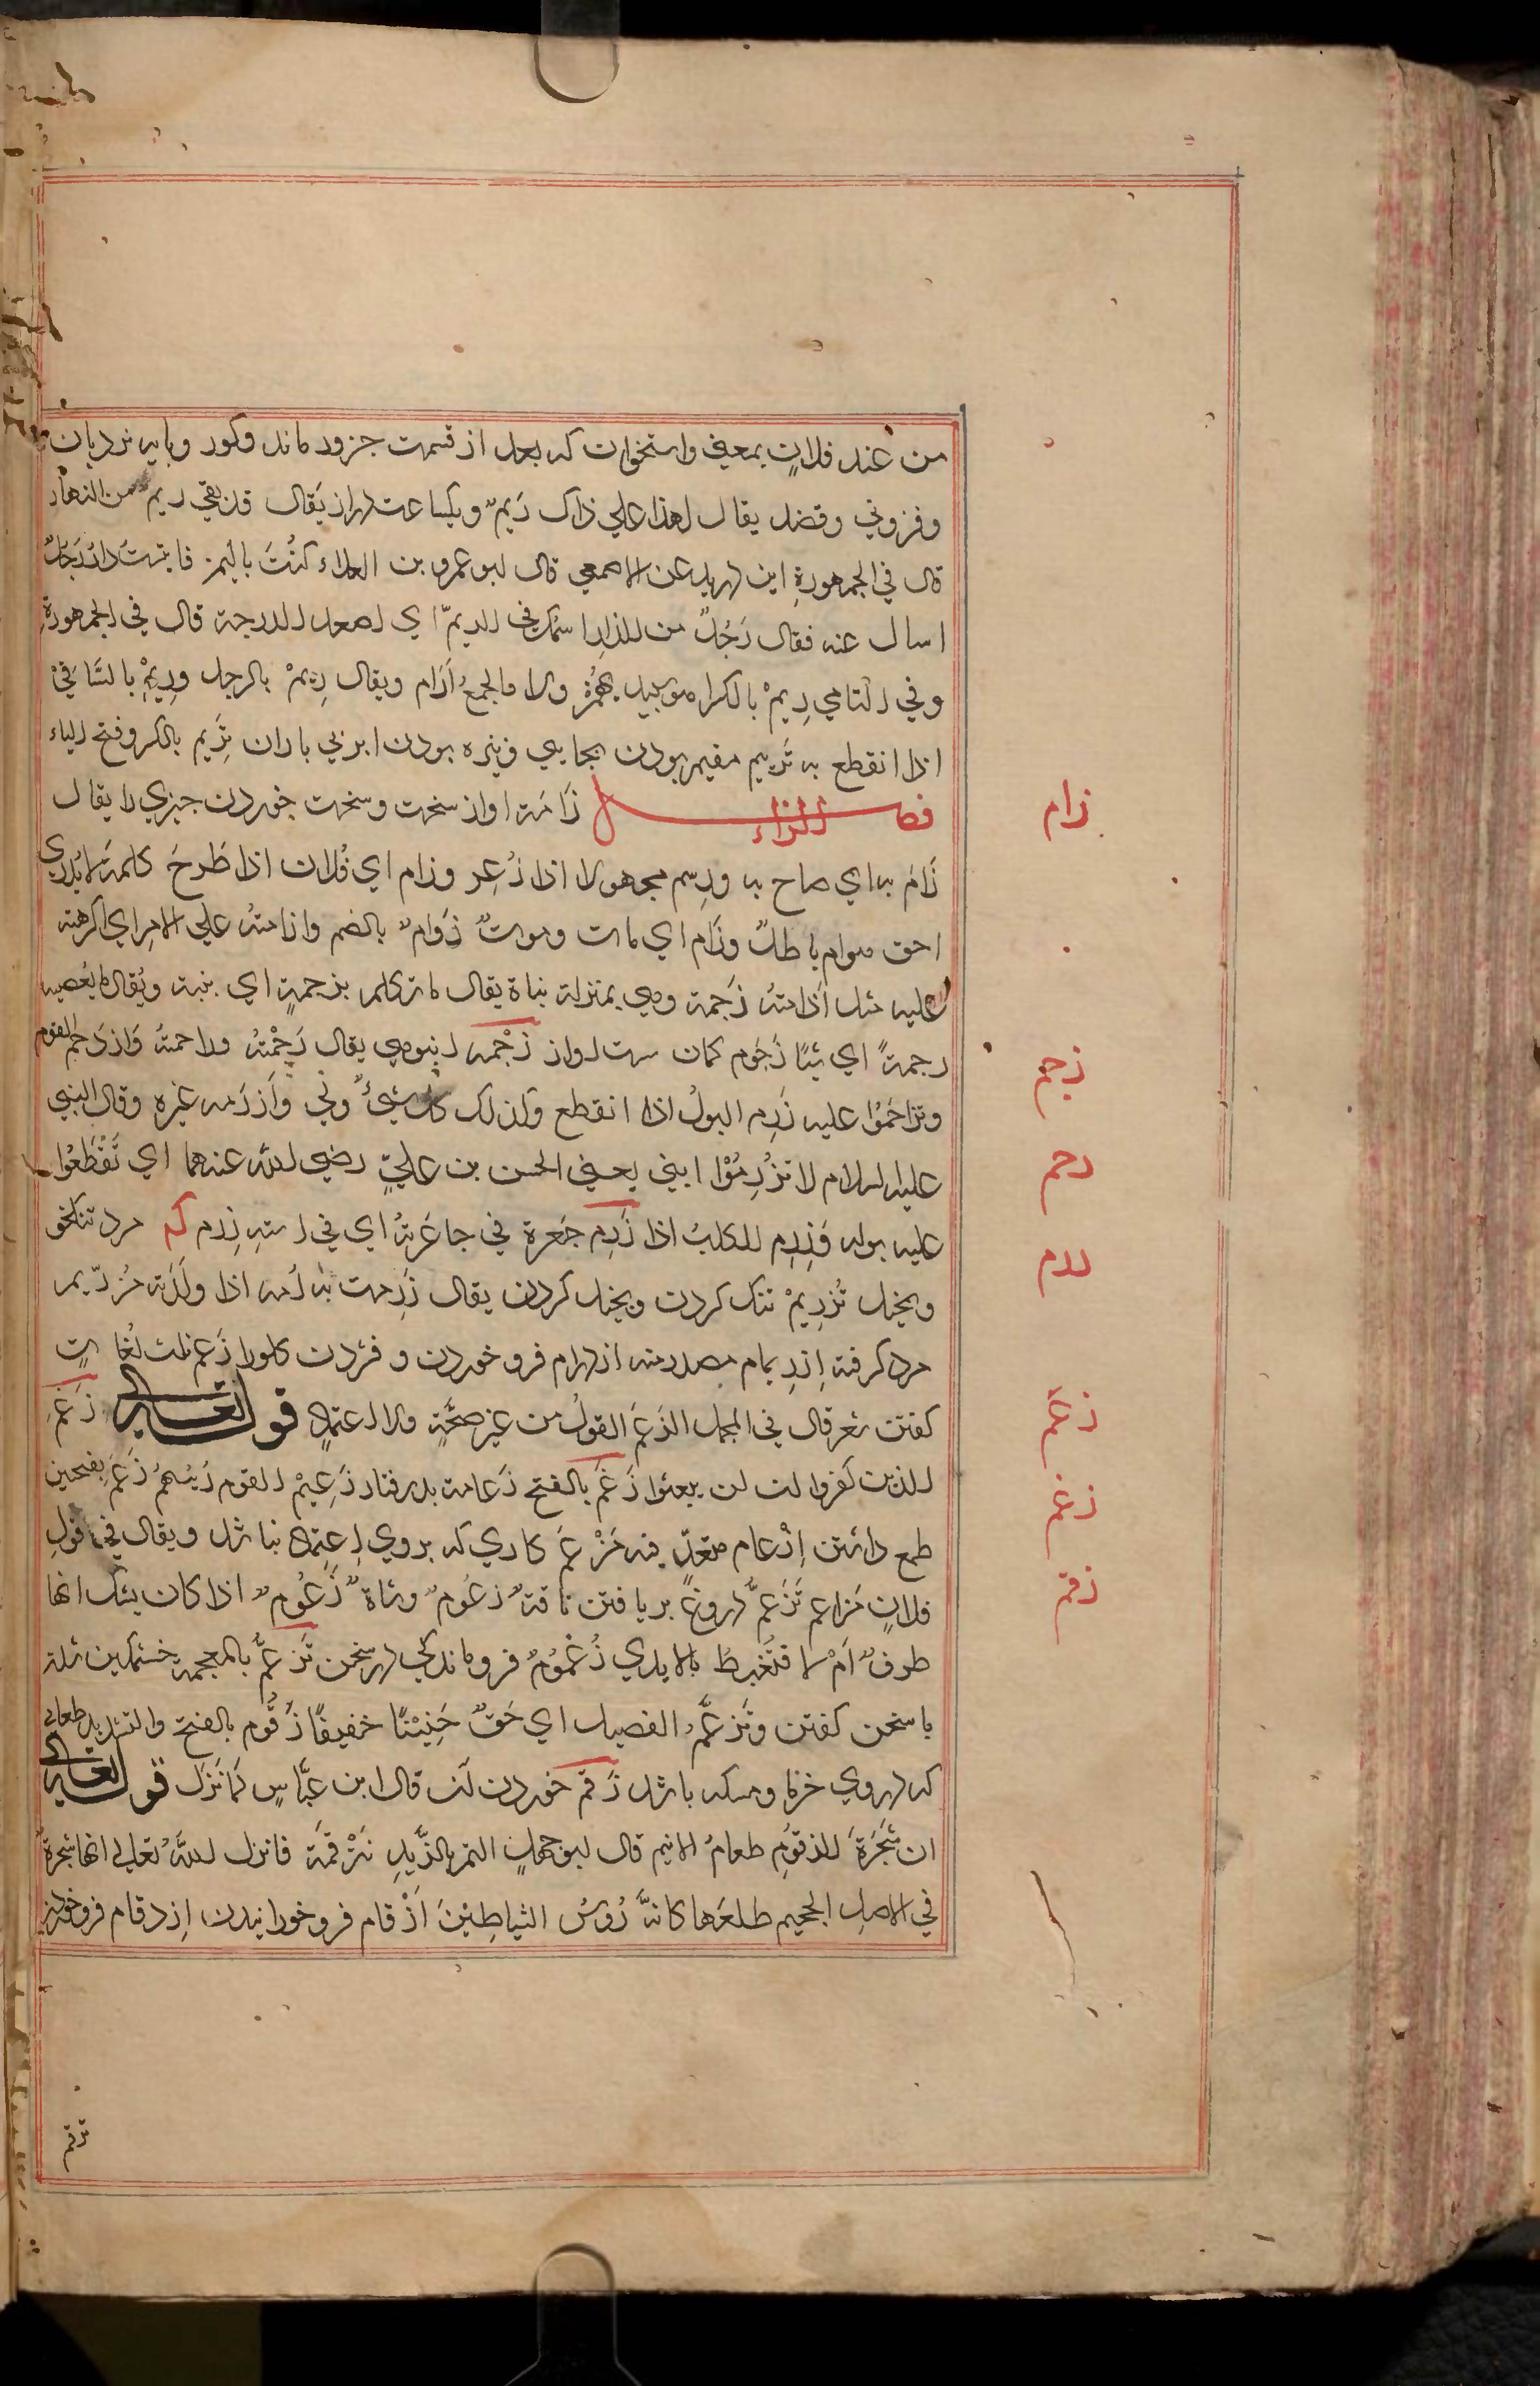 من عند فلانٍ بمعنى واستخوان که بعد از قسمت جزور ماند وکور وپایه نردبان
وفزونی وفضل یقال لهذا علی ذاک رَیمٌ ویکساعت دراز یَقال قد بقی ریم من النهار
قال فی الجمهورةِ ابن درید عن الاصمعی قال ابو عمرو بن العلاء کنُتَ بالیمن فاتیت دار رَجلٌ
اسال عنه فقال رَجُلٌ من الدار اسُمک فی الریمّ ای اصعد الدرجة قال فی الجمهورةِ
وفی التامی رِیمْ بالکسرا هو یهمُز ولا والجمعُ اَرَام ویقال رِیمْ بالرجل ورِیمْ بالتافیْ
اذا انقطع به تَریِیم مقیم بودن بجایی وتیره بودن ابر بی باران تِرْیَم بالکسر وفتح الیاء
فصل الزاء زَامَة اواز سخت وسخت خوردن چیزی را یقال
زَامَ به ای صاح به وزِیم مجهولا اذا ذُعِر وزام ای فُلان اذا طَرحَ کلمة لایُدری
احق هوام باطلٌ وزَام ای مات وموتٌ زَوامٌ بالضم وازامتُه علی الامرِ ای اکرهته
علیه مثل اَذامتهُ زَجمة وهی بمنزلة نباة یقال ما تکلم بزجمةٍ ای بنبة ویُقال ما یُعصیه
زجمةً ای شیًا زَجُوم کمان سست اواز زَحْمه انبوهی یقال زَحْمتُه وزاحمتهُ وَازدَحَم القوم
وتزاحَمُوا علیه زَرِم البولُ اذا انقطع وکذلک کلُ شَیءٌ ولی وَاَزرَمه غیره وقال النبی
علیه السلام لا تزُرِمُوْا ابنی یعنی الحسن بن علیٍ رضی الله عنهما ای تَقَطَعُوا
علیه بوله وَزَرِم الکلبُ اذا زَرِم جَعرة فی جاعَرتهُ ای فی استهِ زِرم کم مرد تنکخو
وبخیل تُزرِیمْ تنک کردن وبخیل کردن یقال زَرِمت به اُمه اذا ولَدَته مُزرّیم
مرد کرفته اِزرِیمام مصدرمنه ازدرام فرو خوردن وفشردن کلورا زَعم ثلث لُغاتٍ
کفتن شعر قال فی المجمل الزَعم القولُ من غیر صحَّةٍ ولا اعتمادٍ قوله تعالی زَعَم
الذین کَفروا ان لن یبعثوا زَعَم بالفتح زَعامة بدرفتار زَعِیْم القوم رَئیسُهمُ زَعَم بفتحین
طمع داشتن اِزْعام متعدٍّ منه مَزْعَم کاری که بروی اِعتماد نباشد ویقال فی قولِ
فلانٍ مَزاعم تَزَعمٌّ دروغ بربافتن ناقةٌ زعُومٌ وشاةٌ زَعُومٌ اذا کان یشک انها
طرفٌ اَمْ لا فتُغْبَطُ بالایدی زُغْمُومٌ فروماندکی در سخن تَزَغمُّ بالمعجمة خشمکین شدن
با سخن کفتن وتَزغمَّ الفصیل ای حَنّ حَنِیْنًا خفیفًا زَقُّوم بالفتح والتشدید طعامی
که در وی خرما ومسکه باشد زَقم خوردن ان قال ابن عبَّاسٍ لمَا نَزَل قوله تعالی
ان شَجَرَةَ الزقومِ طعامُ الاثیم قال ابو جهلٍ التمر بالزُّبدِ نتَزْقمَّة فانزل اللهُ تعالی انها شجرةٌ
فی الاصل الجحیم طلعَها کانهَّ رُوسُ الشیاطِیْنَ اَزْقام فرو خورانیدن اِزدقام فرو خوردن
زام
زجم
زحم
زرم
زعم
زغم
زقم
تزقم